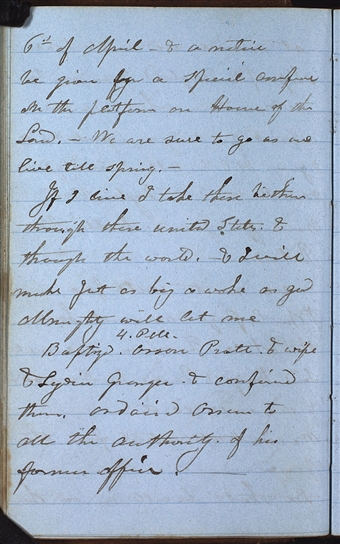 6th of April - & a notice
be given for a special confere
on the platform on House of the
Lord. - We are sure to go as we
live till spring. -
If I live I take these brethren
through these united States. &
through the world. & I will
make Just as big a wake as god
Almighty will let me
4. P.M.
Baptizd. Orson Pratt. & wife
& Lydia Granger. & confirmd
them. ordaind Orson to
all the authority. of his
former office.